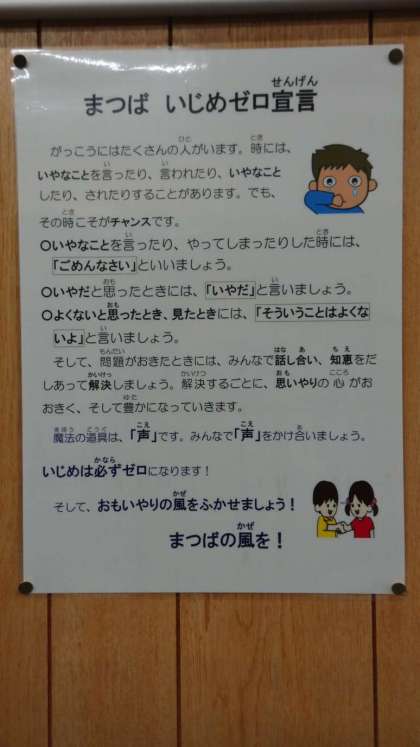 まつば いじめゼロ宣言
がっこうにはたくさんの人がいます。時には、
いやなことを言ったり、言われたり、いやなこと
したり、されたりすることがあります。でも、
その時こそがチャンスです。
○いやなことを言ったり、やってしまったりした時には、
「ごめんなさい」といいましょう。
○いやだと思ったときには、「いやだ」と言いましょう。
○よくないと思ったとき、見たときには、「そういうことはよくな
いよ」と言いましょう。
そして、問題がおきたときには、みんなで話し合い、知恵をだ
しあって解決しましょう。解決するごとに、思いやりの心がお
おきく、そして豊かになっていきます。
魔法の道具は、「声」です。みんなで「声」をかけ合いましょう。
いじめは必ずゼロになります！
そして、おもいやりの風をふかせましょう！
まつばの風を！